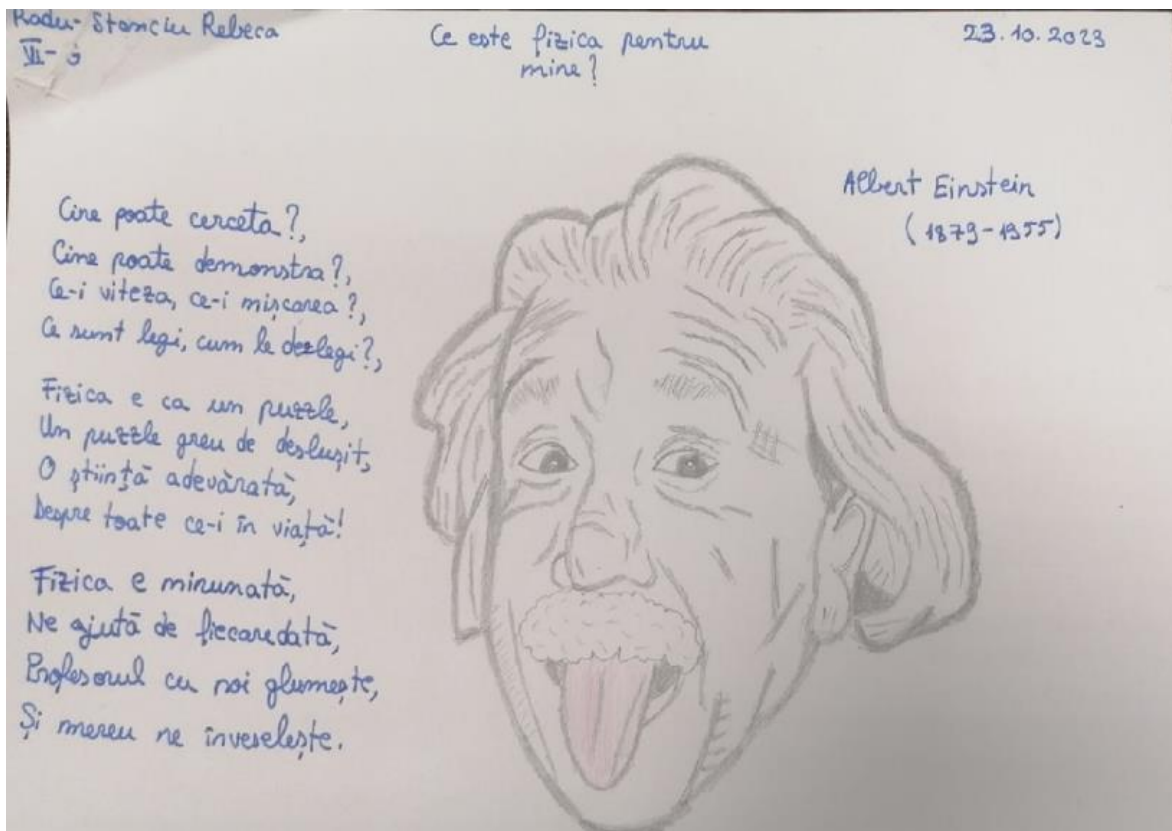 Radu-Stanciu Rebeca
Ce este fizica pentru
mine?
23.10.2023
Albert Einstein
(1879-1955)
Cine poate cerceta?,
Cine poate demonstra?,
Ce-i viteza, ce-i mișcarea?,
Ce sunt legi, cum le dezlegi?,
Fizica e ca un puzzle,
Un puzzle greu de deslușit,
O știință adevărată,
Despre toate ce-i în viață!
Fizica e minunată,
Ne ajută de fiecaredată,
Profesorul cu noi glumește,
Și mereu ne înveselește.